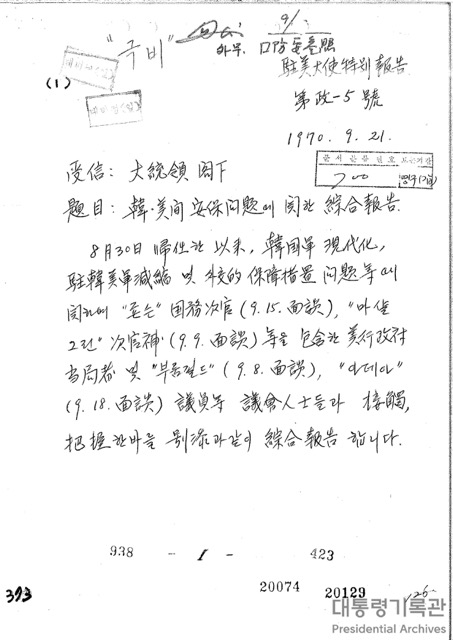 "극비"
(1)
외무.
駐美大使特別報告
第政-5號
1970. 9. 21.
문서분류번호 보존기간
700 영구(갑)
受信: 大統領 閣下
題目: 韓·美間 安保问題에 関한 綜合報告.
8月30日 帰任한 以来, 韓国軍 現代化,
駐韓美軍減縮 및 外交的 保障措置 问題等에
関하여 "존슨" 国務次官 (9.15. 面談), "마샬
그린" 次官補 (9.9. 面談) 等을 包含한 美行政府
当局者 및 "부룸필드" (9.8. 面談), "아데아"
(9.18. 面談) 議員等 議會人士들과 接觸,
把握한바를 別添과같이 綜合報告 합니다.
938 - 1 - 423
20074 20129
393
대통령기록관
Presidential Archives